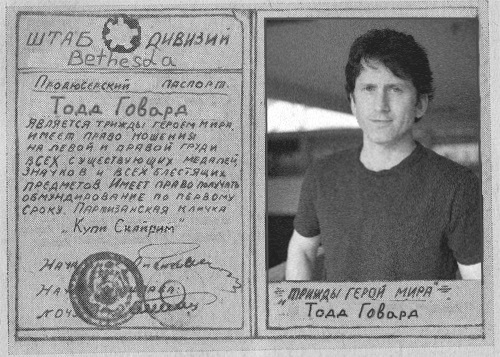 ШТАБ ДИВИЗИЙ
Bethesda
Продюсерский паспорт.
Тодд Говард
Является трижды героем мира,
имеет право ношения
на левой и правой груди
всех существующих медалей,
значков и всех блестящих
предметов. Имеет право получать
обмундирование по первому
сроку. Партизанская кличка
„Купи Скайрим"
"ТРИЖДЫ ГЕРОЙ МИРА"
Тодд Говард